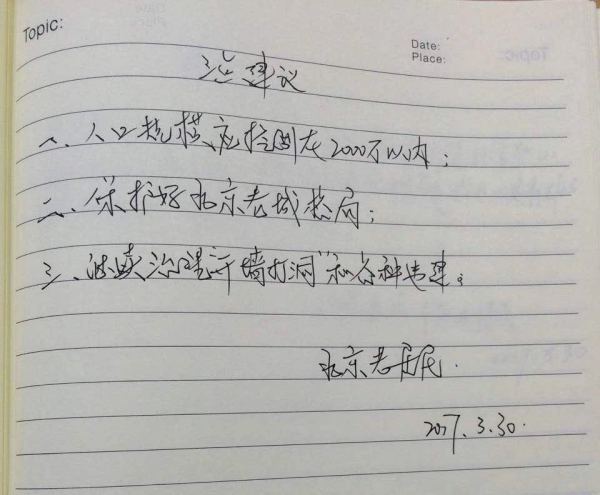 Topic:
Date:
Place:
建议
一、人口规模应控制在2000万以内；
二、保护好北京老城格局；
三、继续治理"开墙打洞"和各种违建。
北京老居民.
2017.3.30.